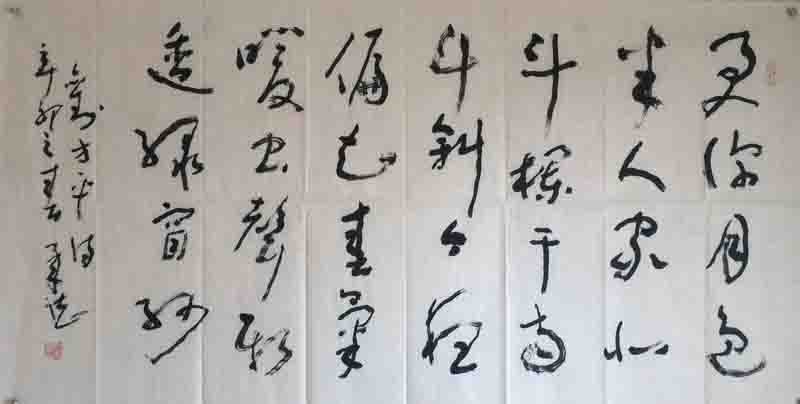 更深月色
半人家北
斗欄干南
斗斜今夜
偏知春氣
暖虫聲新
透綠窗紗
劉方平詩
辛卯之春